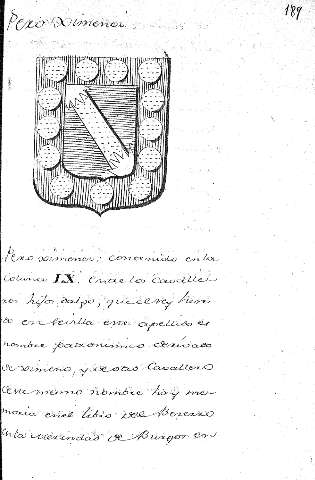 189
Pero Ximenez.
Pero ximenez: contenido en la
Coluna IX. Entre los Cavalle-
ros hijos dalgo, que el rey here-
do en Sevilla era apellido es
nombre patronimico derivado
de ximeno, y deste Cavallero
deste mismo nombre hay me-
moria en el libro del Bezerro
en la merindad de Burgos en